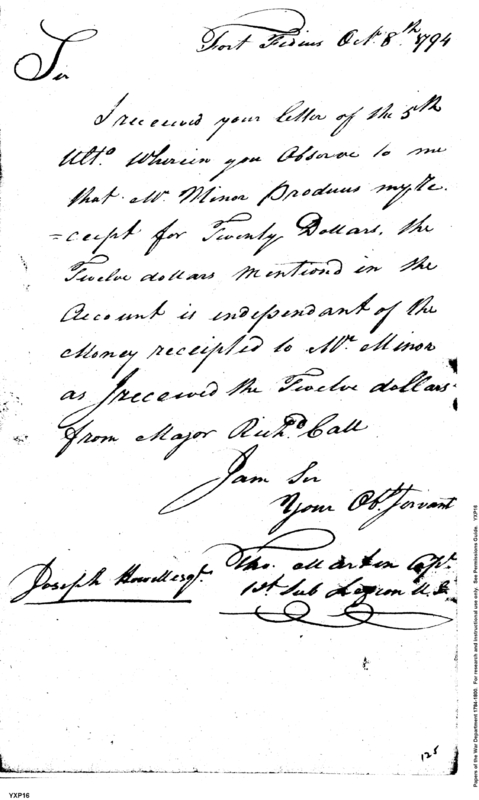 Fort Fidius Octr. 8th. 1794
Sir
I received your letter of the 5th
Ulto. Wherein you Observe to me
that Mr. Minor Produces my Re-
=ceipt for Twenty Dollars, the
Twelve dollars Mentiond in the
Account is independant of the
Money receipted to Mr. Minor
as I received the Twelve dollars
from Major Richd. Call
I am Sir
Your Obt. Servant
Tho. Martin Capt.
1st Sub Legion U.S.
Joseph Howell esqr.
125
YXP16
Papers of the War Department 1784-1800. For research and instructional use only. See Permissions Guide. YXP16